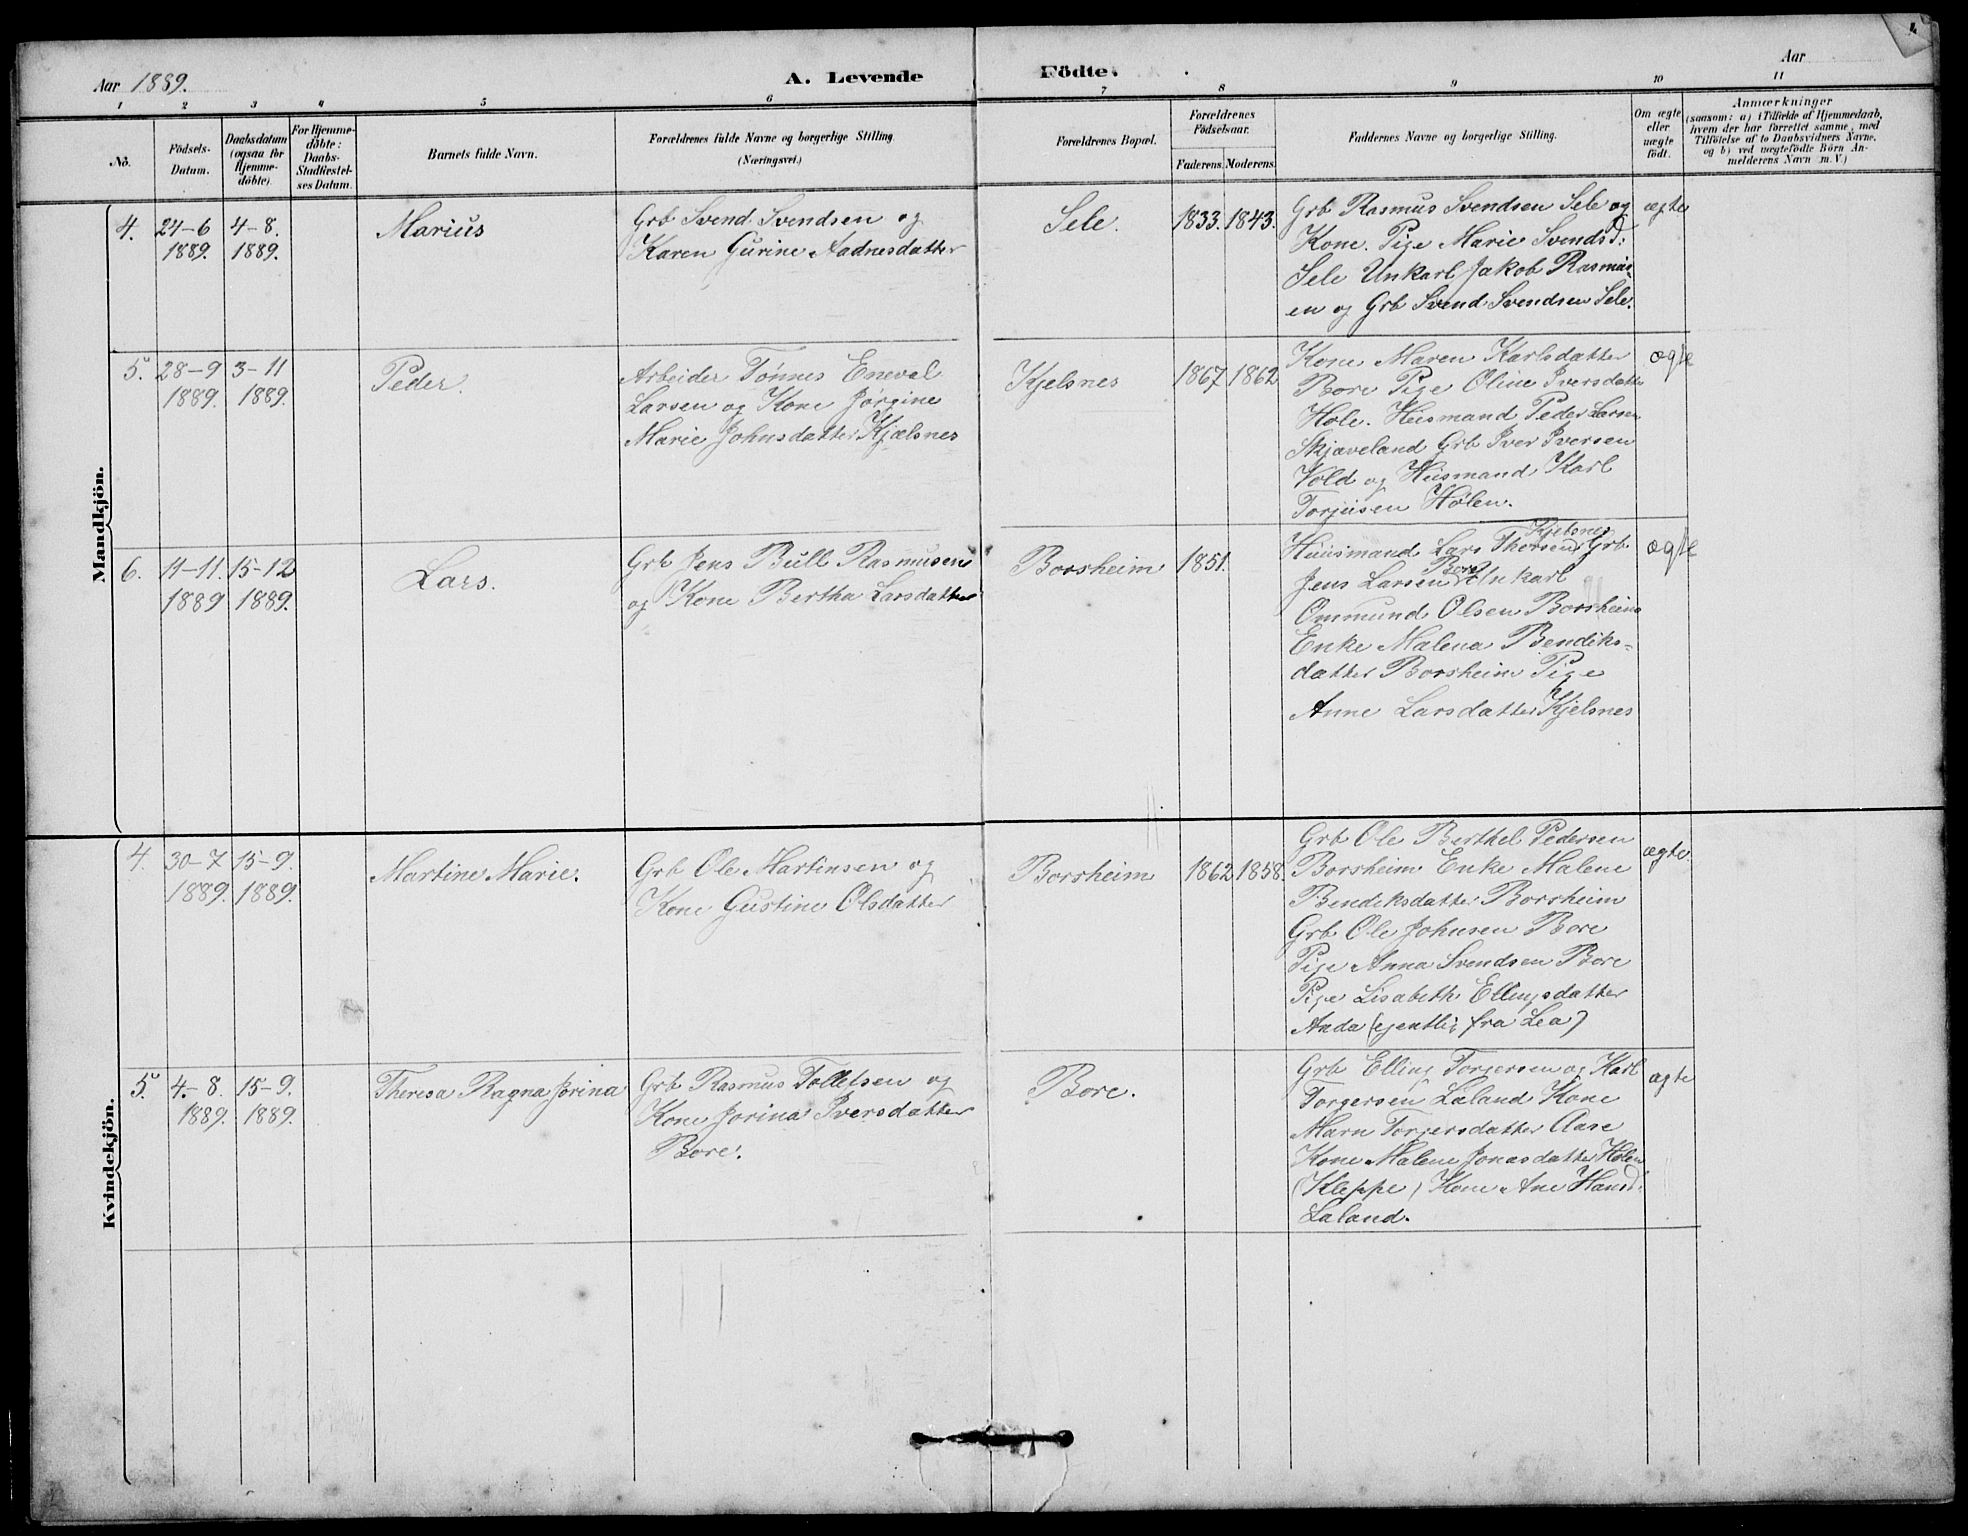 Aar 1889.
A. Levende Födte.
Aar
1 2 3 4 5 6 7 8 9 10 11
No.
Födsels-
Datum.
Daabsdatum
(ogsaa for
Hjemme-
döbte).
For Hjemme-
döbte:
Daabs-
Stadfæstel-
ses Datum.
Barnets fulde Navn.
Forældrenes fulde Navne og borgerlige Stilling.
(Næringsvei.)
Forældrenes Bopæl.
Forældrenes
Födselsaar.
Faderens. Moderens.
Faddernes Navne og borgerlige Stilling.
Om ægte
eller
uægte
födt.
Anmærkninger
(saasom: a) i Tilfælde af Hjemmedaab,
hvem der har forrettet samme, med
Tilföielse af to Daabsvidners Navne,
og b) ved uægtefödte Börn An-
melderens Navn m. V.)
Mandkjön.
4. 24-6 1889. 4-8. 1889.
Marius
Grb Svend Svendsen og
Karen Gurine Aadnesdatter
Sele.
1833. 1843.
Grb Rasmus Svendsen Sele og
Kone. Pige Marie Svendsd:
Sele Unkarl Jakob Rasmus-
en og Grb Svend Svendsen Sele.
ægte
5. 28-9 1889. 3-11 1889.
Peder.
Arbeider Tönnes Eneval
Larsen og Kone Jorgine
Marie Johnsdatter Kjælsnes
Kjelsnes
1867 1862
Kone Maren Karlsdatter
Bore Pige Oline Iversdatter
Hole. Husmand Peder Larsen
Skjæveland Grb Iver Iversen
Vold og Husmand Karl
Torjusen Holen.
ægte
6. 11-11. 1889 15-12 1889.
Lars.
Grb Jens Bull Rasmusen
og Kone Bertha Larsdatter
Borsheim
1851.
Kjelsnes
Huusmand Lars Thorsen Grb
Bore
Jens Larsen Unkarl
Ommund Olsen Borsheim
Enke Malena Bendiks-
datter Borsheim Pige
Anne Larsdatter Kjelsnes
ægte
Kvindekjön.
4. 30-7 1889. 15-9. 1889.
Martine Marie.
Grb Ole Martinsen og
Kone Gustine Olsdatter
Borsheim
1862 1858.
Grb Ole Berthel Pedersen
Borsheim Enke Malene
Bendiksdatter Borsheim
Grb Ole Johnsen Bore
Pige Anna Svendsen Bore
Pige Lisabeth Ellingsdatter
Anda (egentlig fra Lea)
ægte
5. 4.-8. 1889. 15-9. 1889.
Theresa Ragna Jorina
Grb Rasmus Tollefsen og
Kone Jorina Iversdatter
Bore.
Bore.
Grb Elling Torgersen og Karl
Torgersen Laland Kone
Marn Torgersdatter Aase
Kone Malene Jonasdatter Holen
(Kleppe) Kone Ane Hansd:
Laland.
ægte